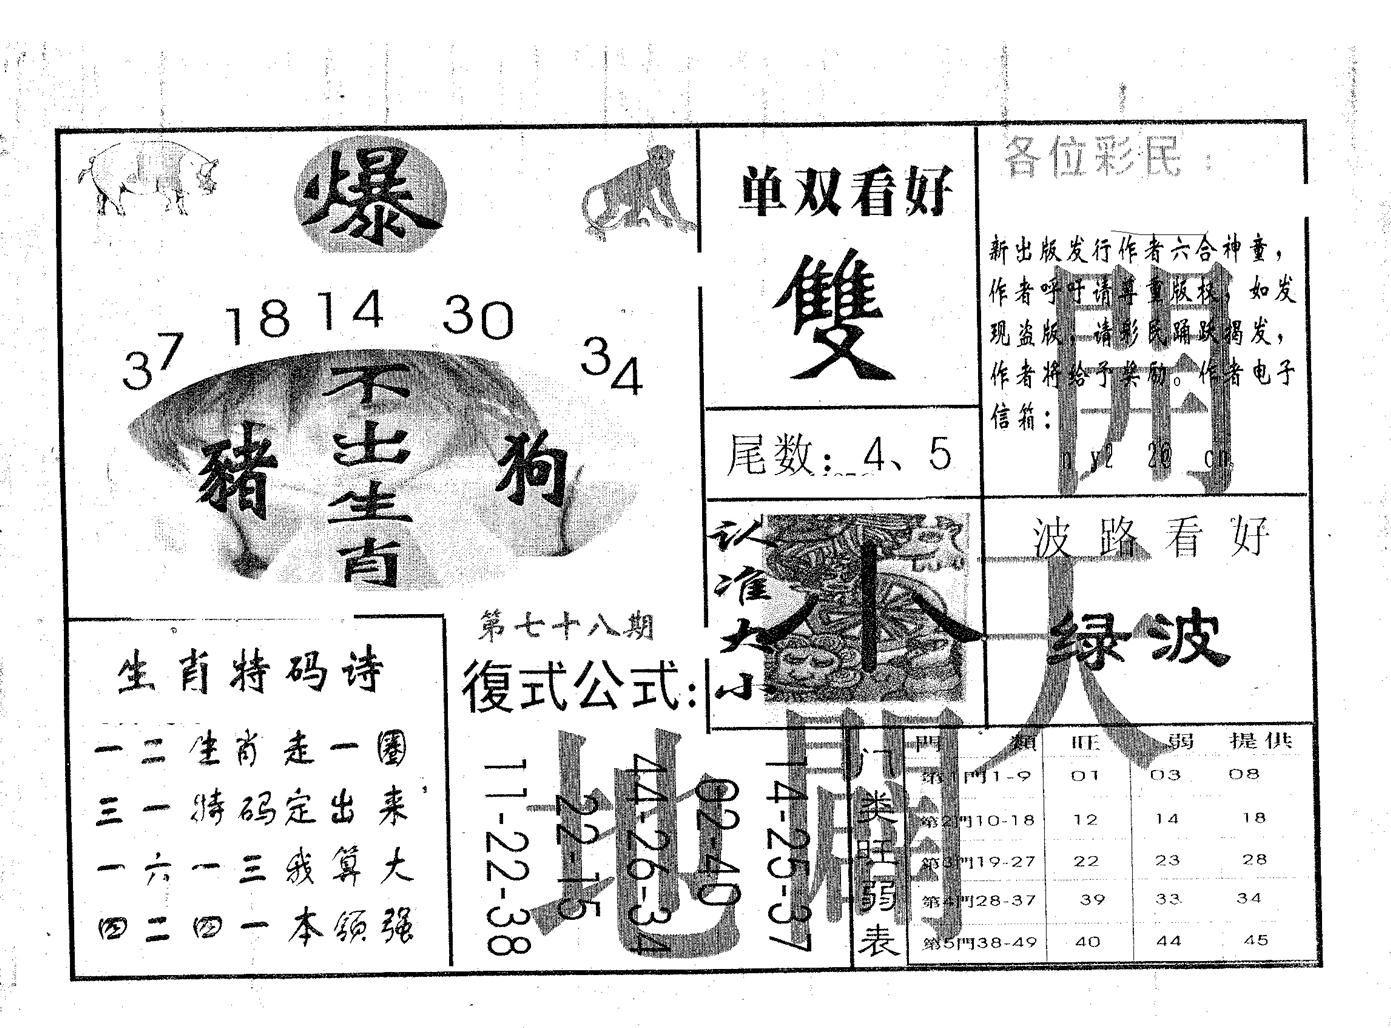 爆
37 18 14 30 34
不出生肖
豬
狗
单双看好
雙
尾数：4、5
各位彩民：
新出版发行作者六合神童，
作者呼吁请尊重版权，如发
现盗版，请彩民踊跃揭发，
作者将给予奖励。作者电子
信箱：
開
认准大小
小
波路看好
绿波
天
生肖特码诗
一二生肖走一圈
三一特码定出来
一六一三我算大
四二四一本领强
第七十八期
復式公式：
11-22-38
22-15
44-26-34
02-40
14-25-37
地
開
门类旺弱表
門類 旺 弱 提供
第1門1-9 01 03 08
第2門10-18 12 14 18
第3門19-27 22 23 28
第4門28-37 39 33 34
第5門38-49 40 44 45